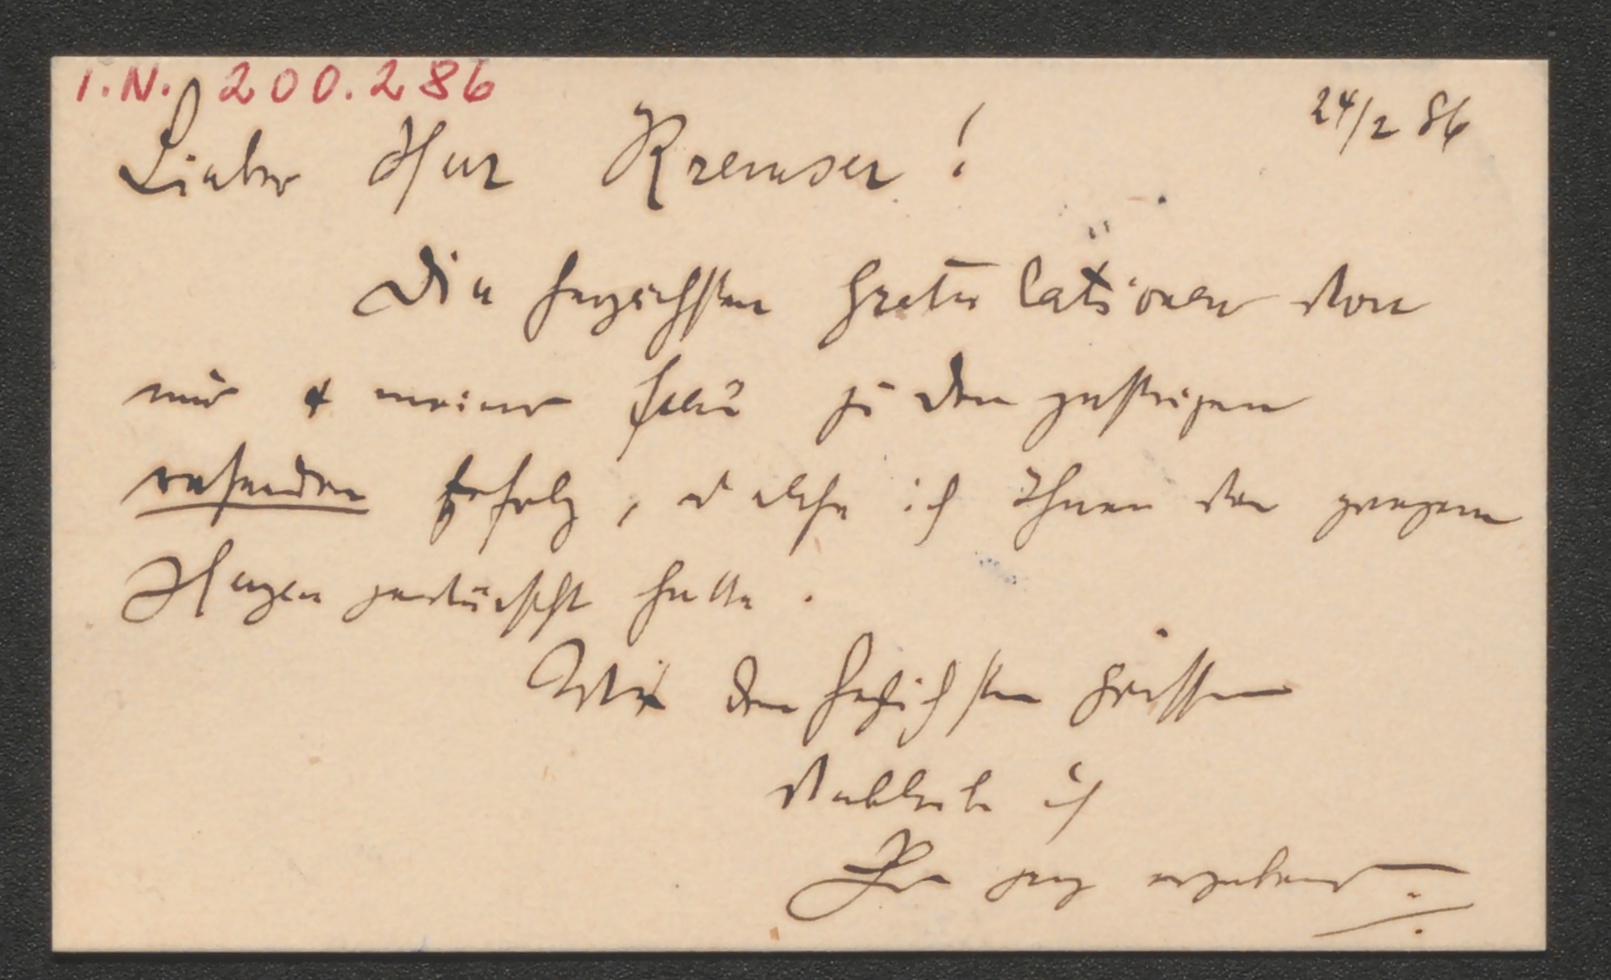 I.N. 200.286
24/2 86
Lieber Herr Kremser!
Die herzlichsten Gratulationen von
mir & meiner Frau zu dem gestrigen
Erfolg, welche ich Ihnen von ganzem
Herzen gewünscht hatte.
Mit den herzlichsten Grüssen
verbleibe ich
Ihr ganz ergebener